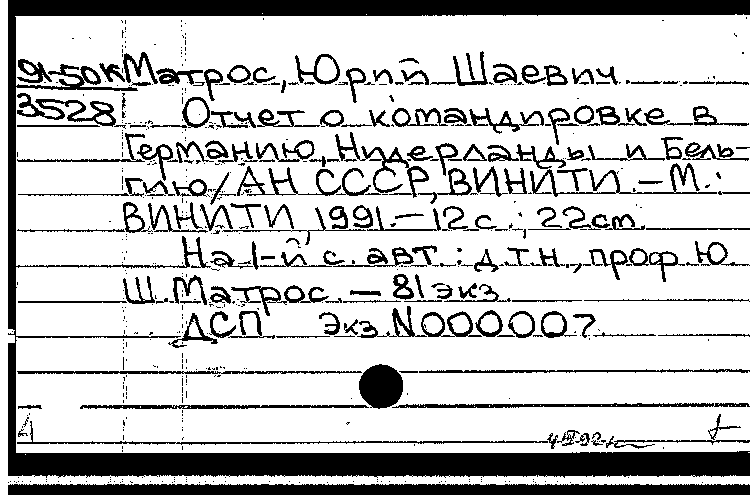 91-50к Матрос, Юрий Шаевич.
3528 Отчет о командировке в
Германию, Нидерланды и Бель-
гию/АН СССР, ВИНИТИ. – М.:
ВИНИТИ, 1991. – 12 с.; 22 cm.
На 1-й с. авт.: д.т.н., проф. Ю.
Ш. Матрос. – 81 экз.
ДСП Экз. N000007.
A
4 III 92